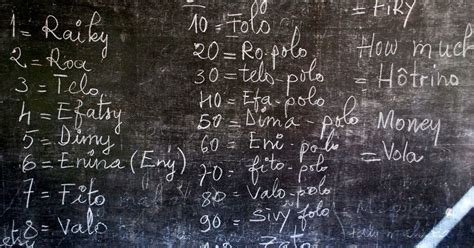 1 = Raiky
2 = Roa
3 = Telo
4 = Efatsy
5 = Dimy
6 = Enina (Eny)
7 = Fito
8 = Valo
10 = Folo
20 = Ro.polo
30 = telo-polo
40 = Efa-polo
50 = Dima-polo
60 = Eni-polo
70 - fito-polo
80 = Valo-polo
90 = Sivy folo
= FIRY
How much
= Hôtrino
Money
= Vola